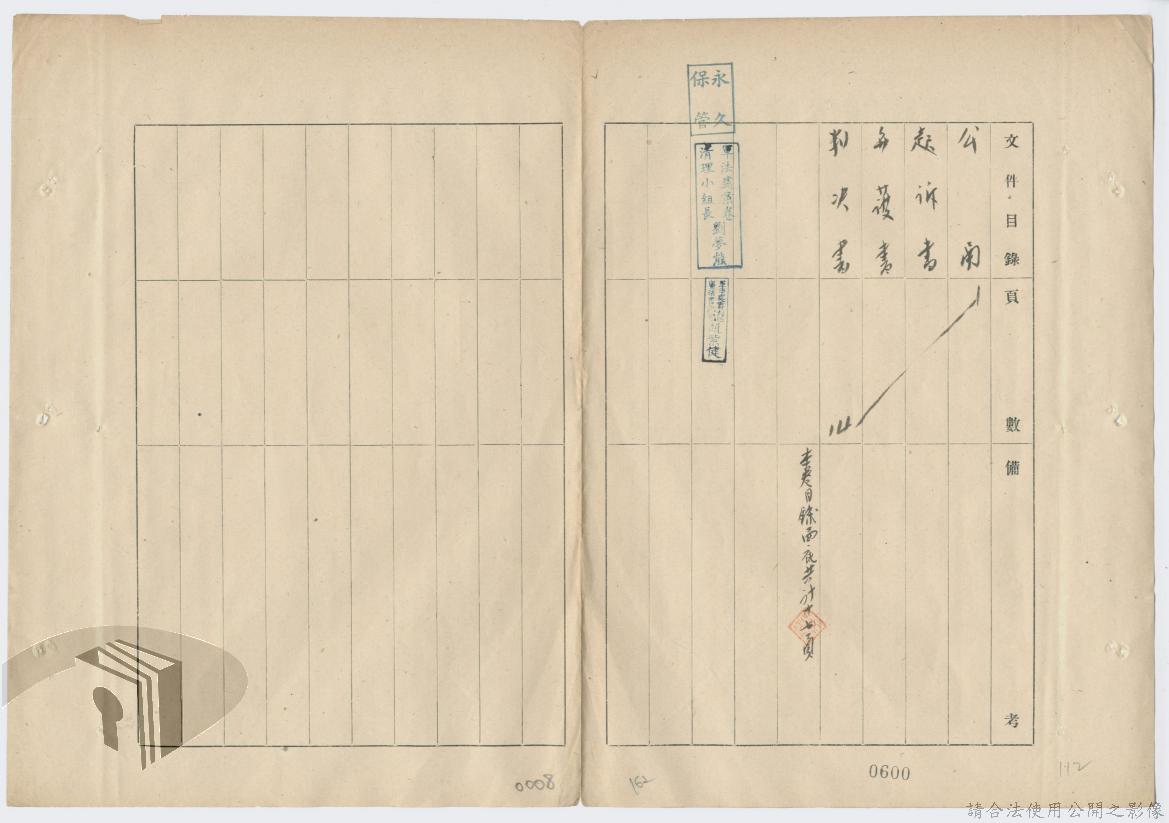 文件目錄
頁數
備考
公函
起訴書
弁護書
判決書
1
14
本卷目錄面底共計十七頁
永久
保管
軍法處案卷
清理小組長
劉夢熊
健
0600
0008
162
112
請合法使用公開之影像